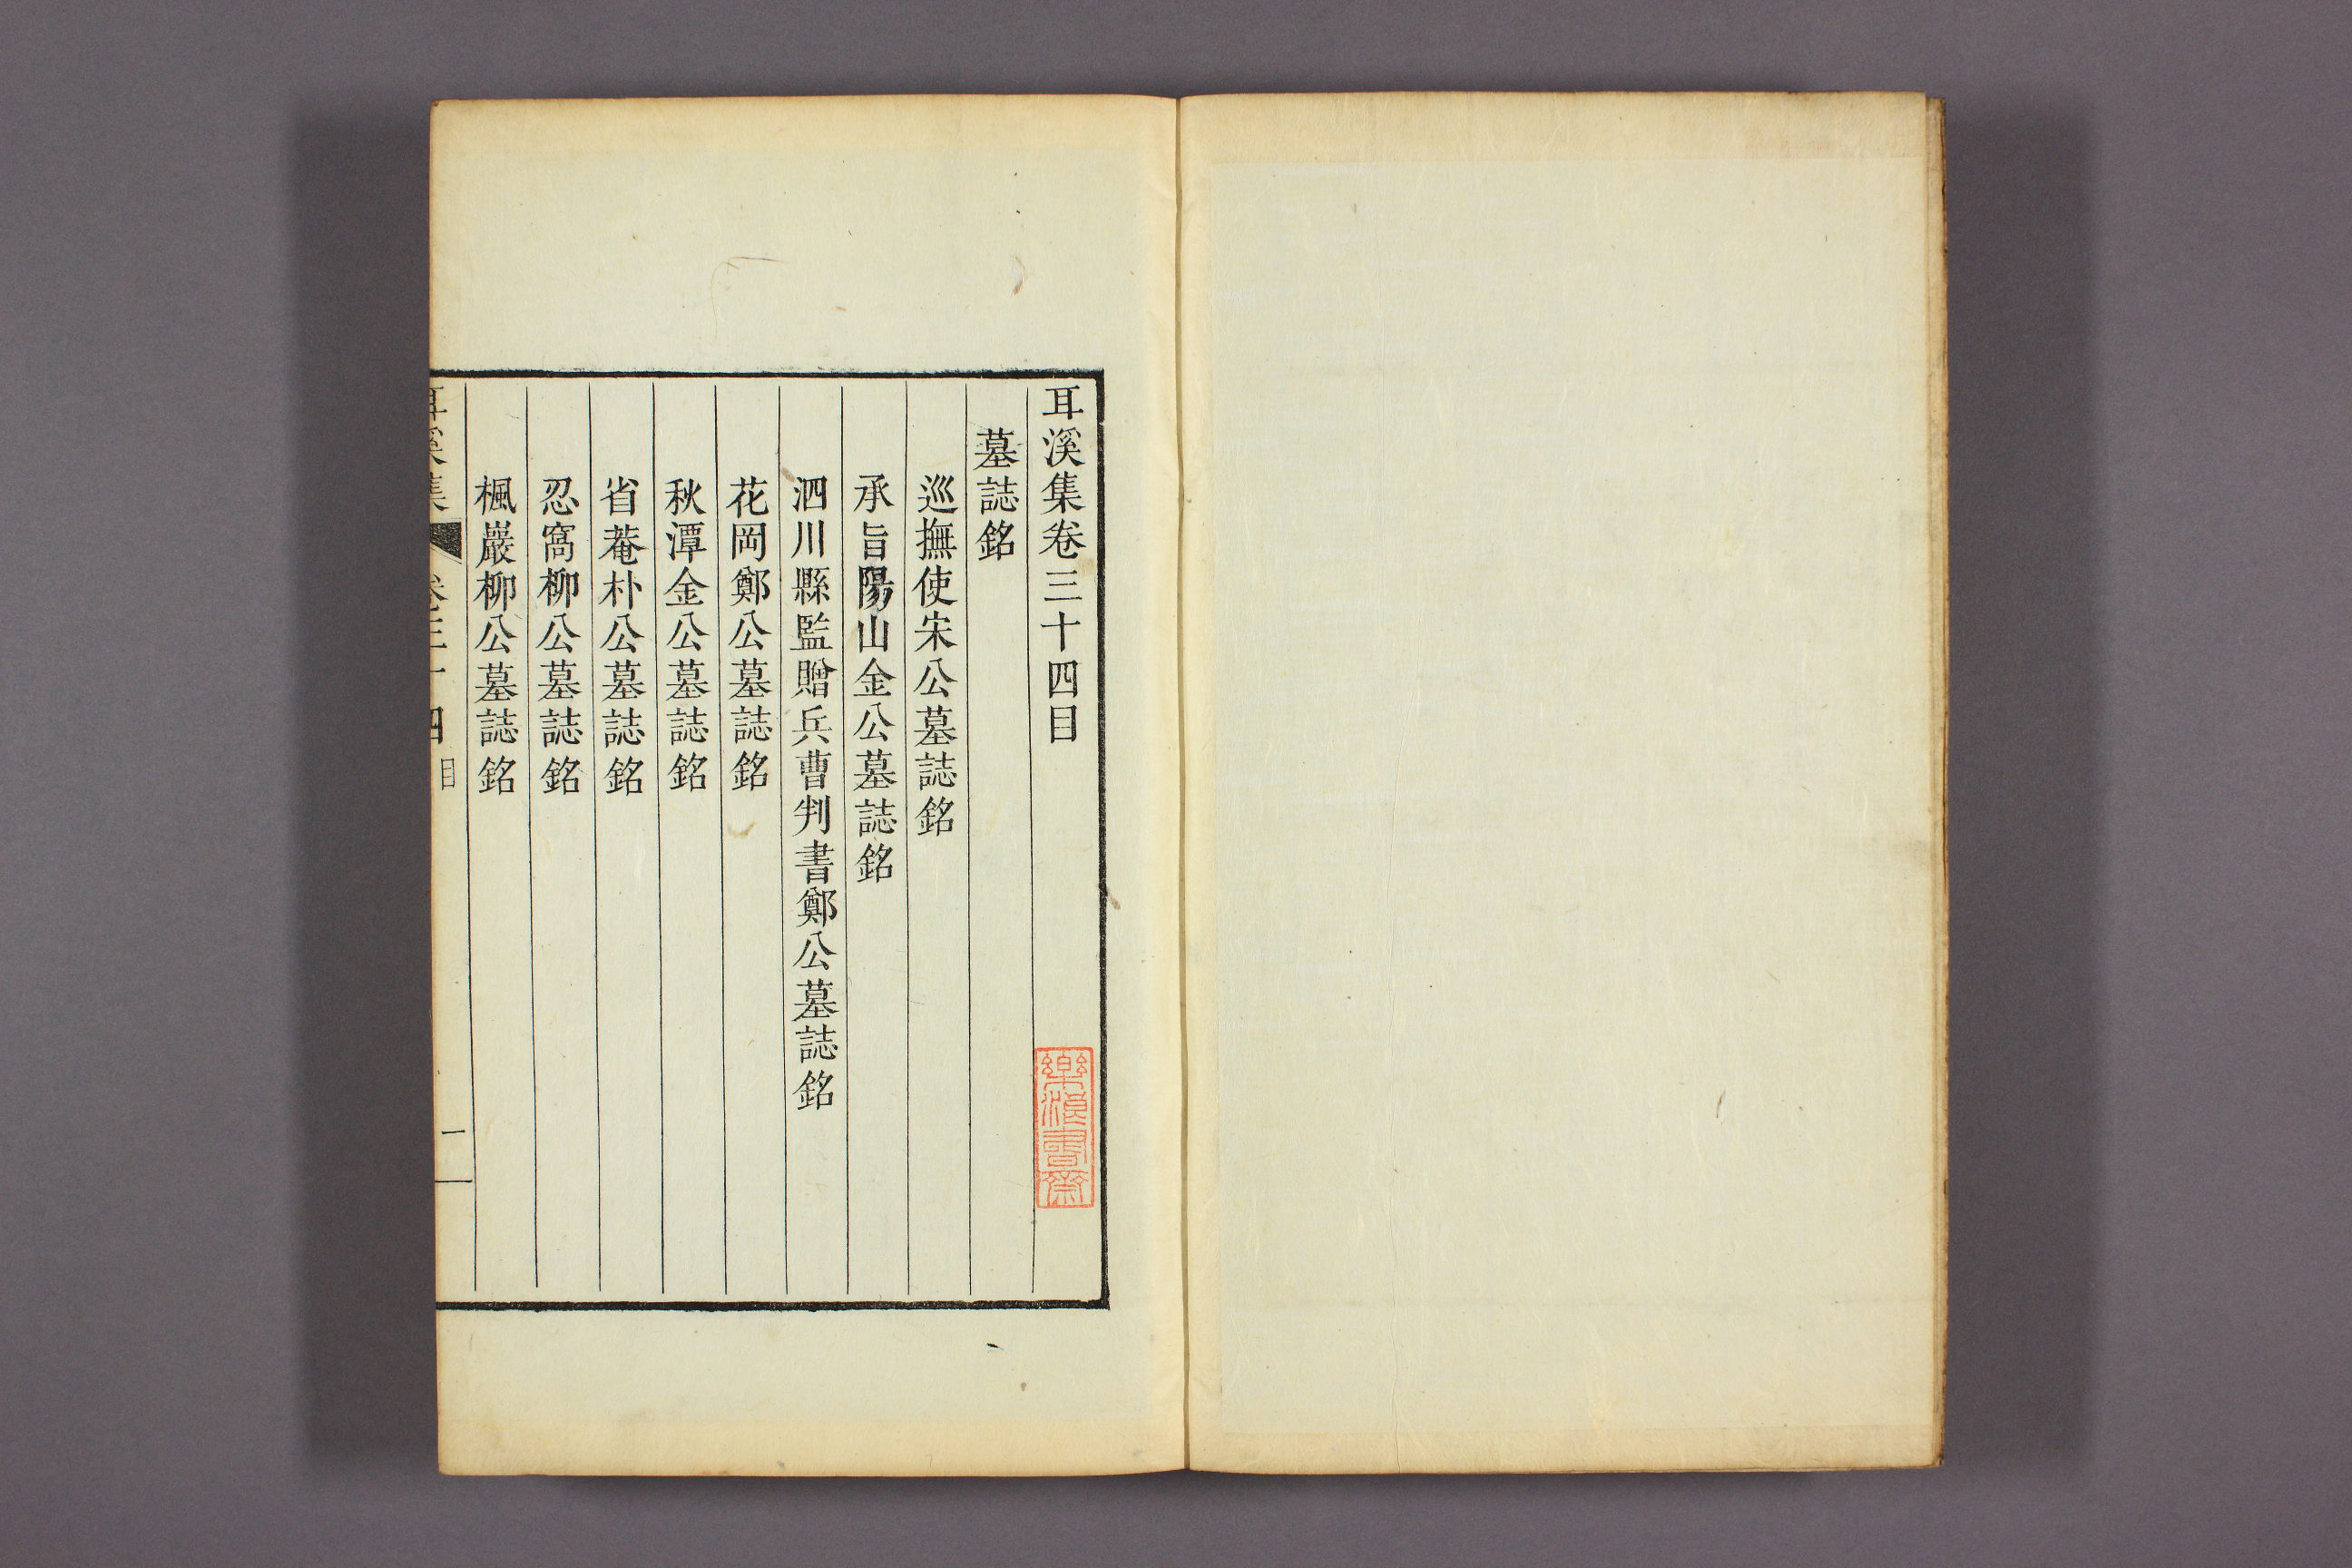 耳溪集卷三十四目
墓誌銘
巡撫使宋公墓誌銘
承旨陽山金公墓誌銘
泗川縣監贈兵曹判書鄭公墓誌銘
花岡鄭公墓誌銘
秋潭金公墓誌銘
省菴朴公墓誌銘
忍窩柳公墓誌銘
楓巖柳公墓誌銘
耳溪集 卷三十四 目 一